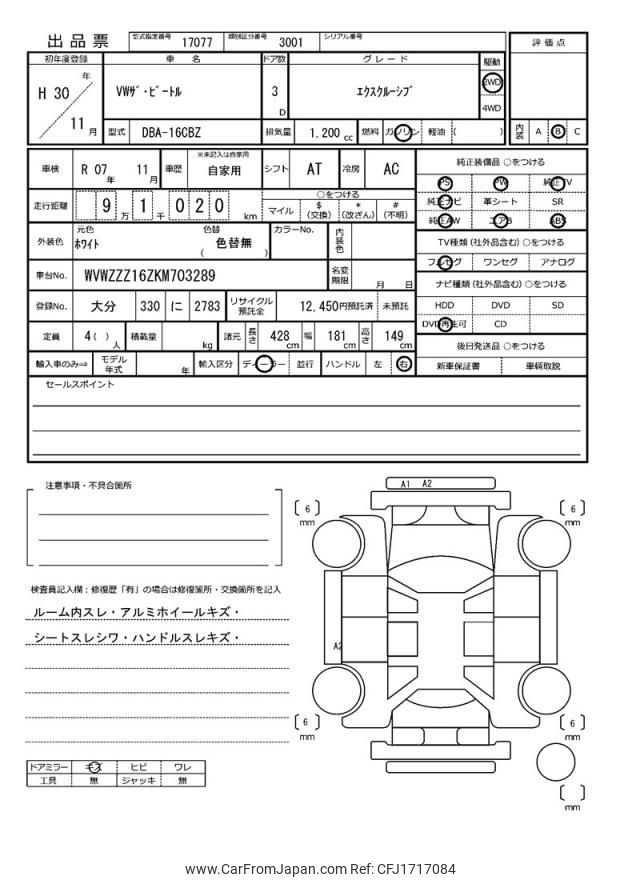 出品票 型式指定番号 17077 類別区分番号 3001 シリアル番号
評価点
初年度登録 車名 ドア数 グレード 駆動
H 30 年 11 月 VWザ・ビートル 3 D エクスクルーシブ 2WD 4WD
型式 DBA-16CBZ 排気量 1.200 cc 燃料 ガソリン 軽油 ( ) 内装 A B C
車検 R 07 年 11 月 車歴 ※未記入は自家用 自家用 シフト AT 冷房 AC
純正装備品 ○をつける
PS PW 純正TV
走行距離 9 万 1 千 0 2 0 km
○をつける
マイル $ (交換) * (改ざん) # (不明)
純正ナビ 革シート SR
純正AW エアB ABS
外装色 元色 ホワイト 色替 ( 色替無 ) カラーNo. 内装色
TV種類 (社外品含む) ○をつける
フルセグ ワンセグ アナログ
車台No. WVWZZZ16ZKM703289 名変期限 月 日
ナビ種類 (社外品含む) ○をつける
登録No. 大分 330 に 2783 リサイクル預託金 12,450円預託済 未預託
HDD DVD SD
DVD再生可 CD
定員 4 ( ) 人 積載量 kg 諸元 長さ 428 cm 幅 181 cm 高さ 149 cm
後日発送品 ○をつける
輸入車のみ⇒ モデル年式 年 輸入区分 ディーラー 並行 ハンドル 左 右
新車保証書 車輌取説
セールスポイント
注意事項・不具合箇所
A1 A2
[ 6 ] mm
[ 6 ] mm
検査員記入欄：修復歴「有」の場合は修復箇所・交換箇所を記入
ルーム内スレ・アルミホイールキズ・
シートスレシワ・ハンドルスレキズ・
A2
[ 6 ] mm
[ 6 ] mm
ドアミラー キズ ヒビ ワレ
工具 無 ジャッキ 無
[ ] mm
www.CarFromJapan.com Ref: CFJ1717084